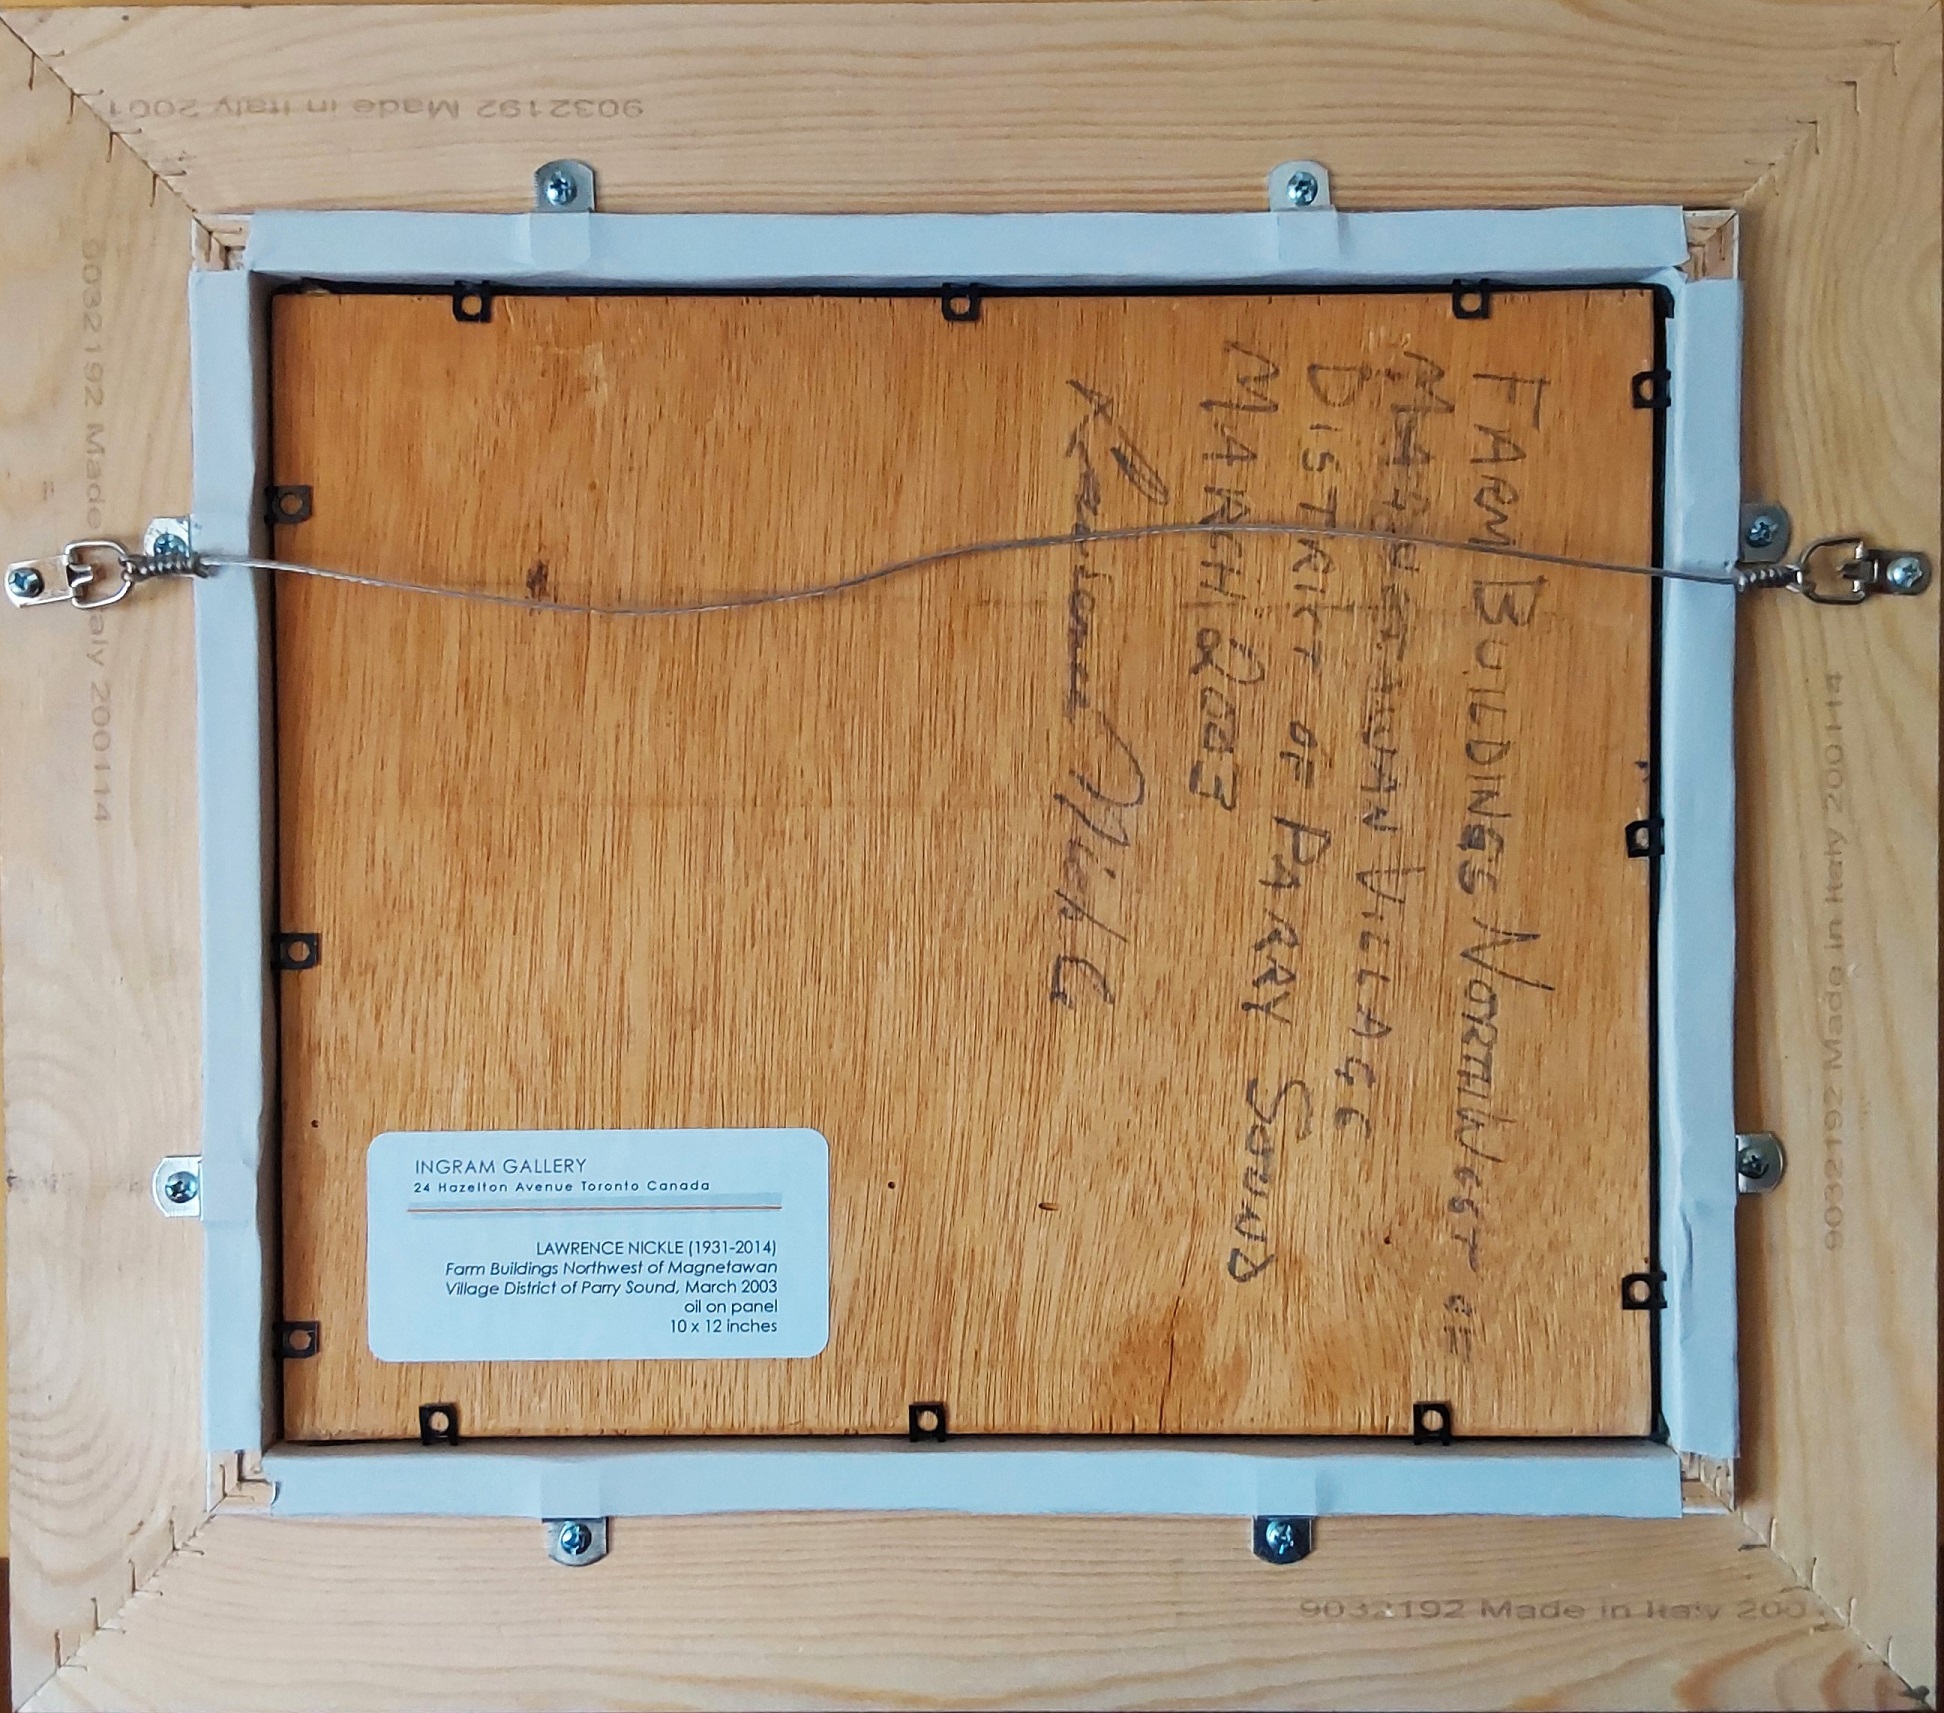 9032192 Made in Italy 2001
9032192 Made Italy 200114
FARM BUILDINGS NORTHWEST OF
MAGNETAWAN VILLAGE
DISTRICT OF PARRY SOUND
MARCH 2003
Lawrence Nickle
9032192 Made in Italy 200114
INGRAM GALLERY
24 Hazelton Avenue Toronto Canada
LAWRENCE NICKLE (1931-2014)
Farm Buildings Northwest of Magnetawan
Village District of Parry Sound, March 2003
oil on panel
10 x 12 inches
9032192 Made in Italy 200